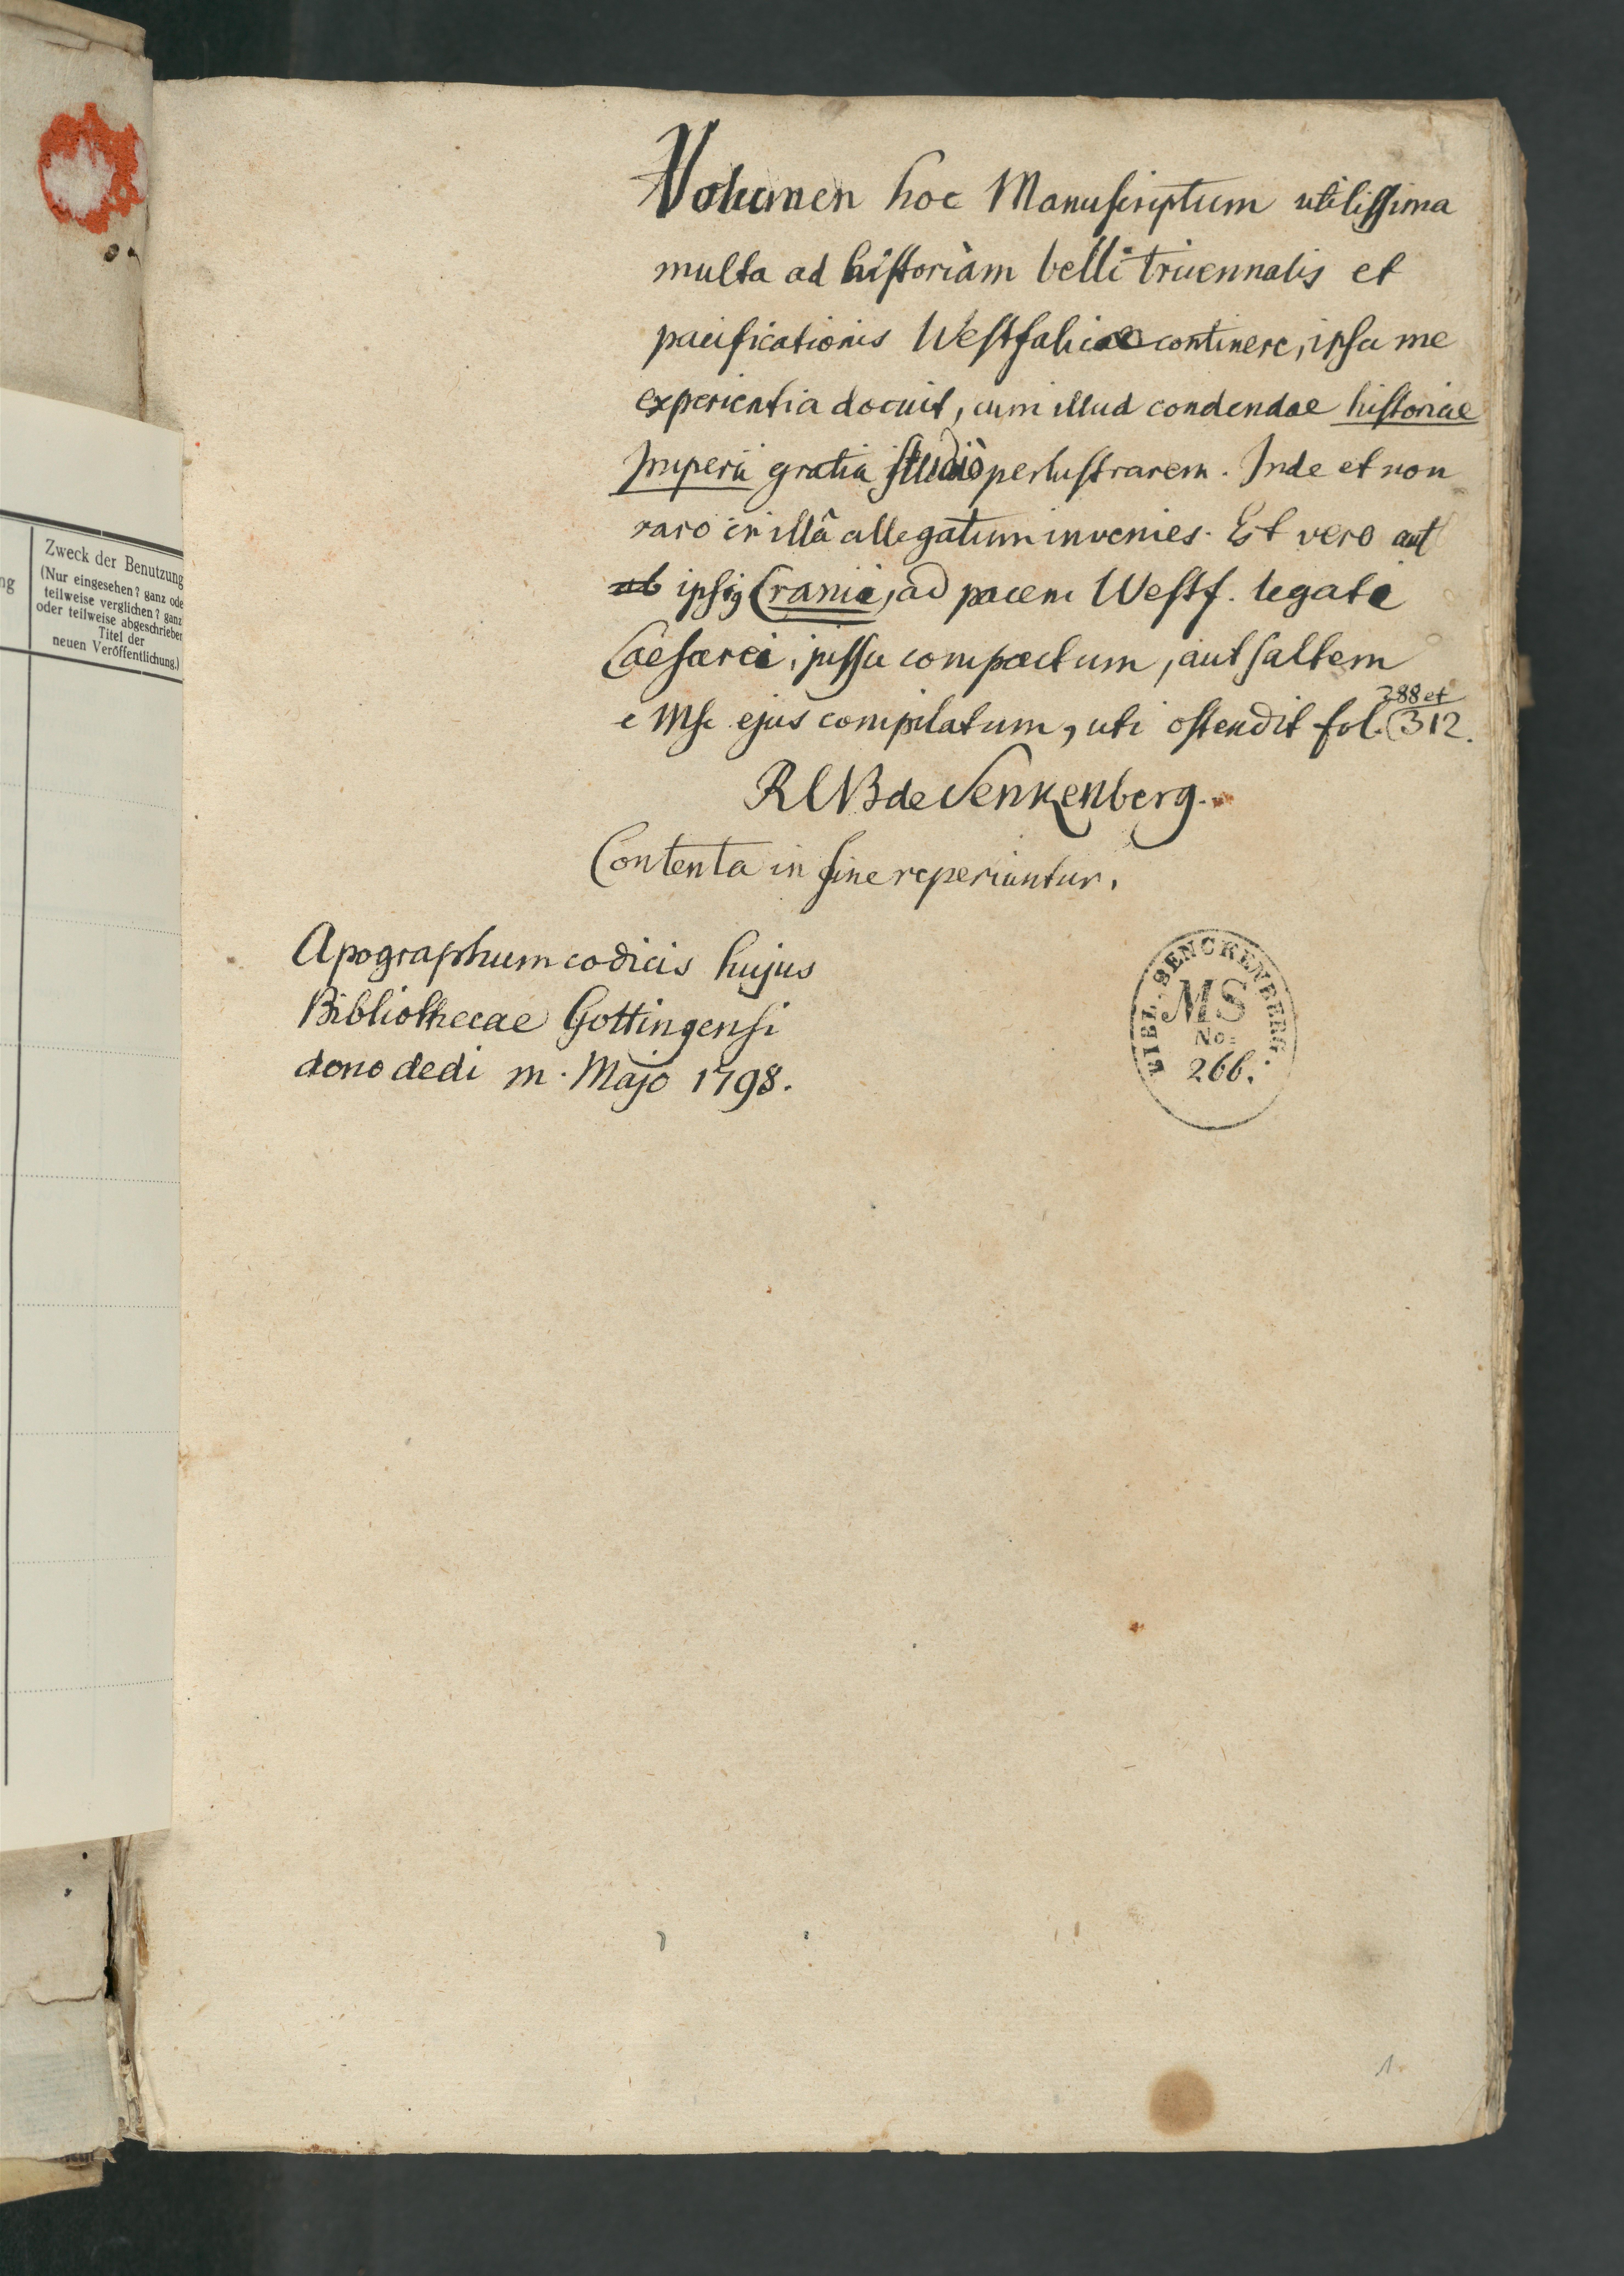 Volumen hoc Manuscriptum utilissima
multa ad historiam belli tricennalis et
pacificationis Westfalicae continere, ipsa me
experientia docuit, cum illud condendae historiae
Imperii gratia studio perlustrarem. Inde et non
raro in illâ allegatum invenies. Et vero aut
ab ipsig Cranii, ad pacem Westf. legati
Caesarei, jussu compactum, aut saltem
e Msc ejus compilatum, uti ostendit fol. 288 et 312.
RLVB de Senkenberg.
Contenta in fine reperiuntur.
Apographum codicis hujus
Bibliothecae Gottingensi
dono dedi m. Majo 1798.
BIBL. SENCKENBERG.
MS
No:
266.
1
ng
Zweck der Benutzung
(Nur eingesehen? ganz ode
teilweise verglichen? ganz
oder teilweise abgeschrieben
Titel der
neuen Veröffentlichung.)